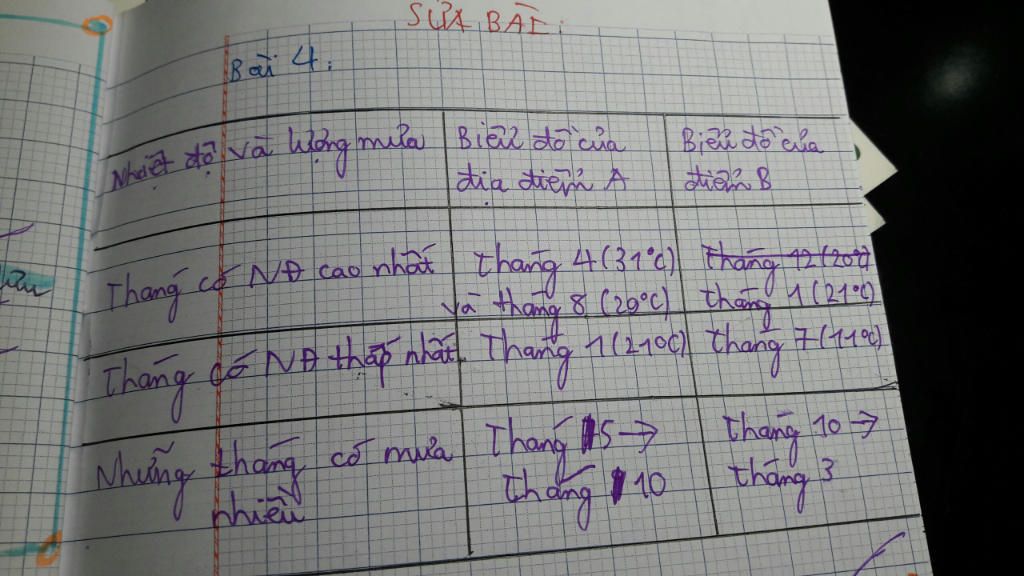 SỬA BÀI:
Bài 4:
Nhiệt độ và lượng mưa
Biểu đồ của
địa điểm A
Biểu đồ của
điểm B
Tháng có NĐ cao nhất
tháng 4 (31°C)
và tháng 8 (29°C)
tháng 12 (20°C)
tháng 1 (21°C)
Tháng có NĐ thấp nhất
Tháng 1 (21°C)
tháng 7 (11°C)
Những tháng có mưa
nhiều
Tháng 5 →
tháng 10
tháng 10 →
tháng 3